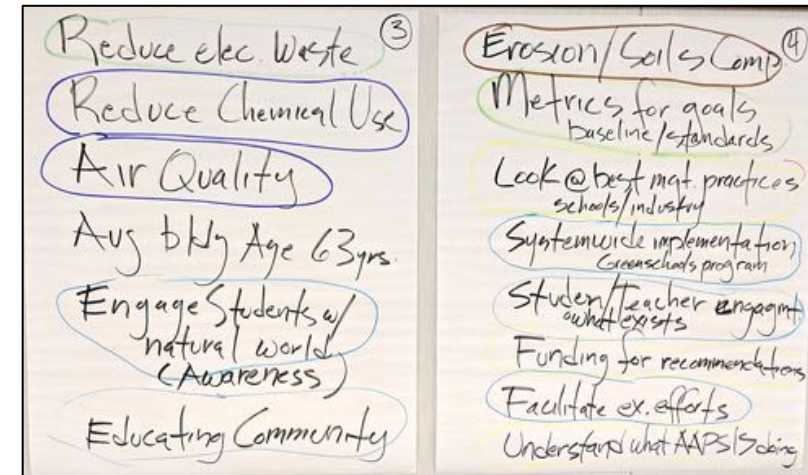 ③
Reduce elec. Waste
Reduce Chemical Use
Air Quality
Avg bldg Age 63yrs.
Engage Students w/
natural world
(Awareness)
Educating Community
④
Erosion/Soils Comp.
Metrics for goals
baseline/standards
Look @ best mgt. practices
schools/industry
Systemwide implementation
Greenschools program
Student/Teacher engagmt.
o what exists
Funding for recommendations
Facilitate ex. efforts
Understand what AAPS IS doing